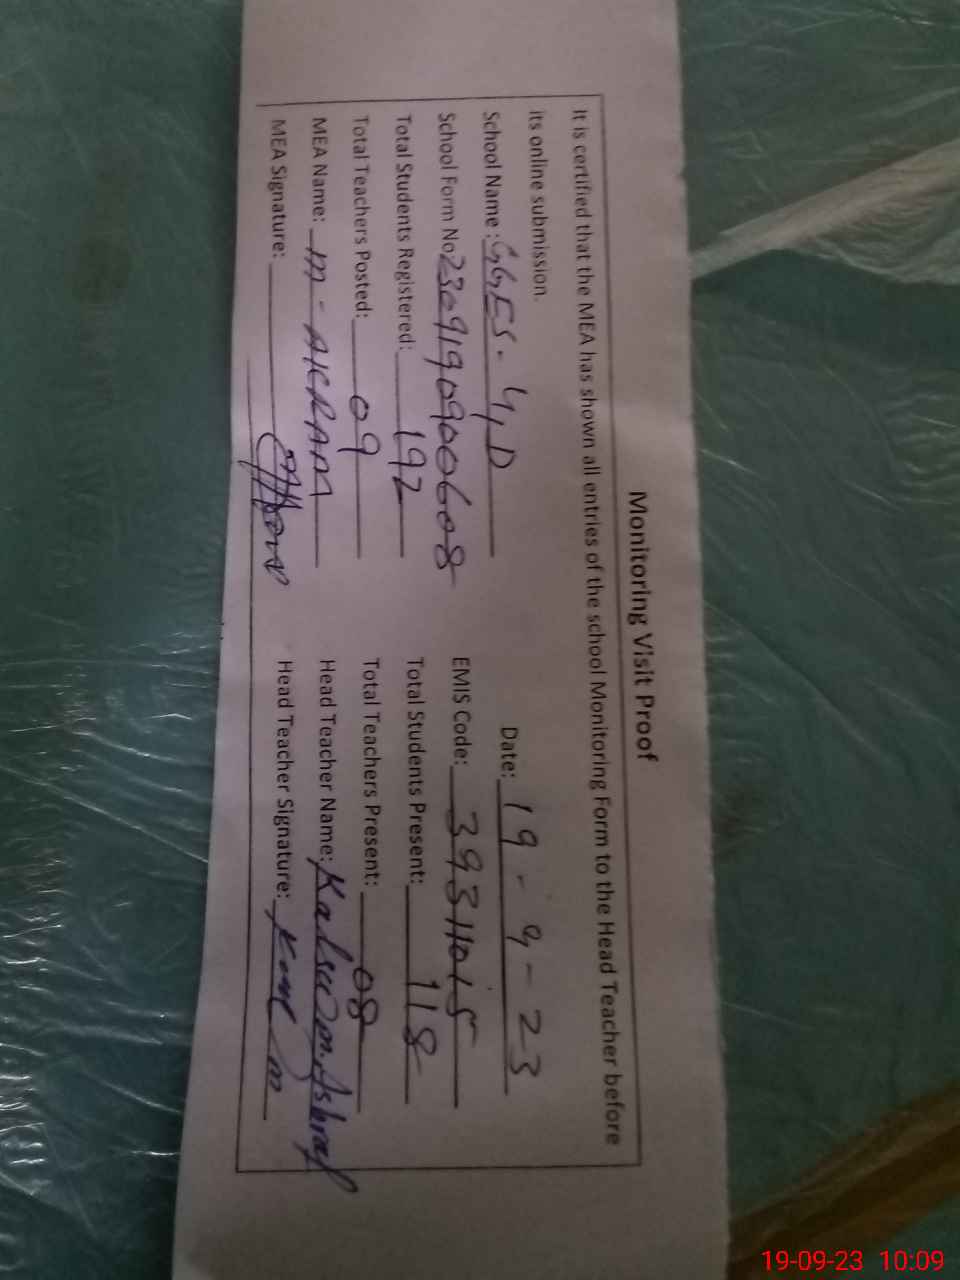 Monitoring Visit Proof
It is certified that the MEA has shown all entries of the school Monitoring Form to the Head Teacher before
its online submission.
Date: 19-9-23
School Name: GGES-4/D
School Form No 2309190900608 EMIS Code: 39311015
Total Students Registered: 192 Total Students Present: 118
Total Teachers Posted: 09 Total Teachers Present: 08
MEA Name: M-AKRAM Head Teacher Name: Kalsoom Ashraf
MEA Signature: Head Teacher Signature:
19-09-23 10:09